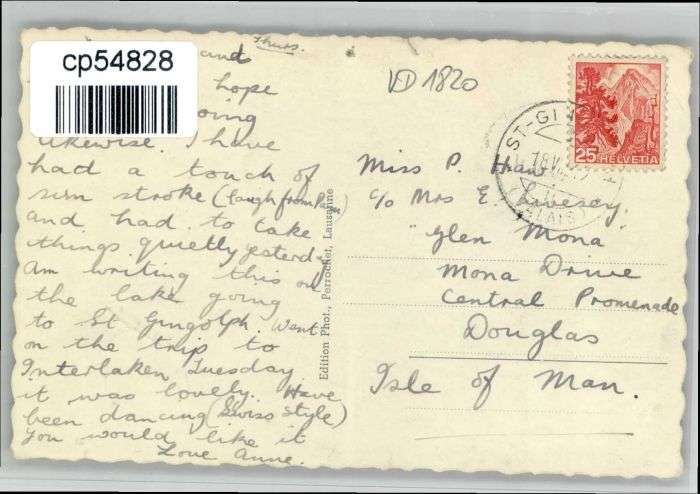 cp54828
Thurs.
and
hope
oing
likewise. I have
had a touch of
sun stroke (laugh from Pam)
and had to take
things quietly yesterday
Am writing this on
the lake going
to St Gingolph. Went
on the trip to
Interlaken Tuesday
it was lovely. Have
been dancing (Swiss Style)
you would like it
Love Anne.
Edition Phot., Perrochet, Lausanne
VD 1820
ST-GI
(VALAIS)
25 HELVETIA
Miss P.
c/o Mrs E. Livesey,
"Glen Mona
Mona Drive
Central Promenade
Douglas
Isle of Man.